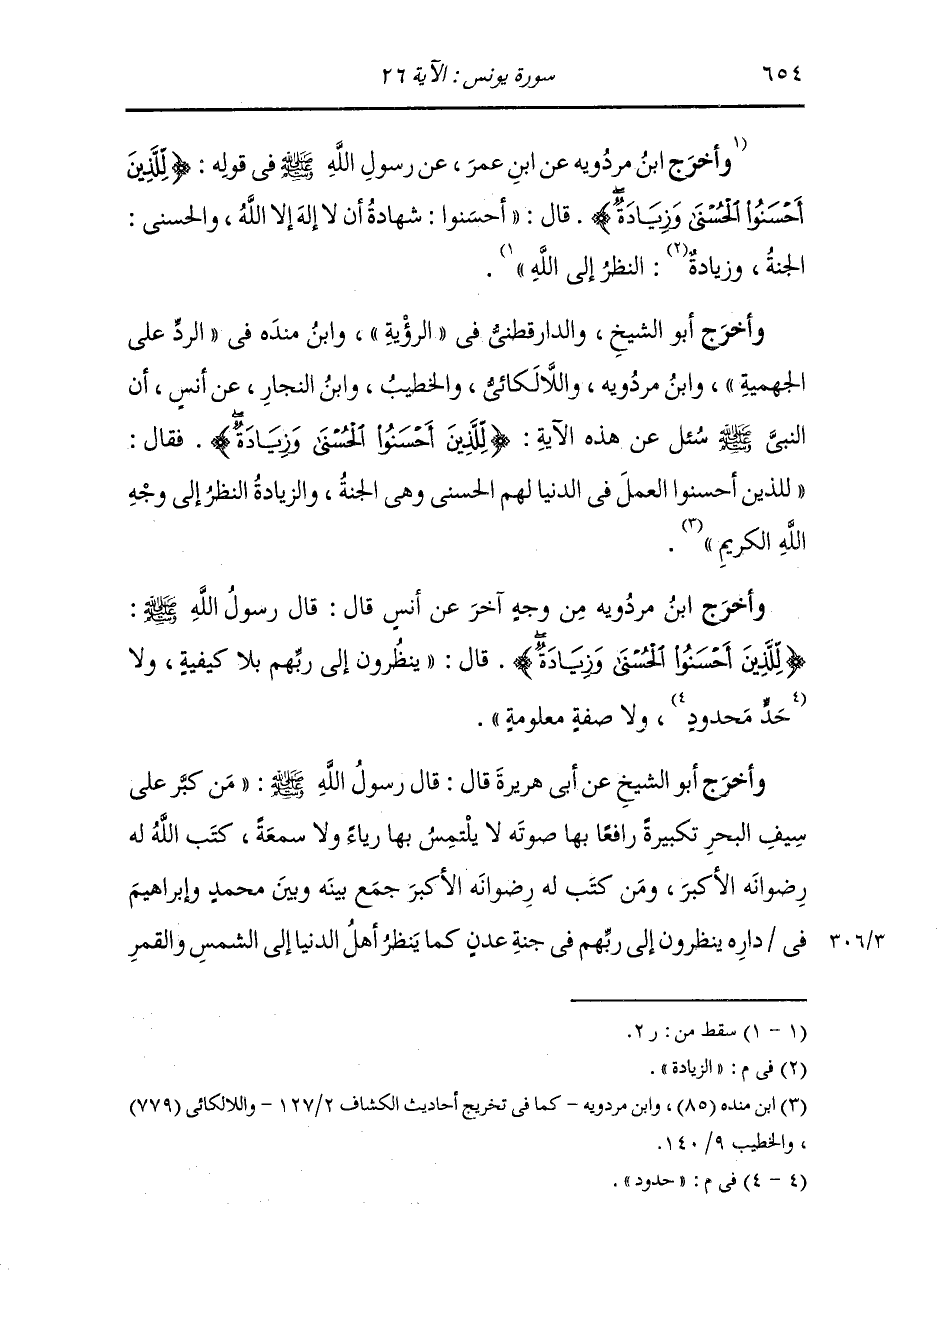 ٦٥٤ سورة يونس : الآية ٢٦
(١وأخرَج ابنُ مردُويه عن ابنِ عمرَ ، عن رسولِ اللَّهِ ﷺ فى قولِه : ﴿ لِّلَّذِينَ
أَحْسَنُوا۟ ٱلْحُسْنَىٰ وَزِيَادَةٌۖ ﴾ . قال : « أحسَنوا : شهادةُ أن لا إلهَ إلا اللَّهُ ، والحسنى :
الجنةُ ، وزيادةٌ(٢) : النظرُ إلى اللَّهِ »١) .
وأخرَج أبو الشيخِ ، والدارقطنىُّ فى « الرؤيةِ » ، وابنُ مندَه فى « الردِّ على
الجهميةِ » ، وابنُ مردُويه ، واللَّالَكائىُّ ، والخطيبُ ، وابنُ النجارِ ، عن أنسٍ ، أن
النبىَّ ﷺ سُئل عن هذه الآيةِ : ﴿ لِّلَّذِينَ أَحْسَنُوا۟ ٱلْحُسْنَىٰ وَزِيَادَةٌۖ ﴾ . فقال :
« للذين أحسنوا العملَ فى الدنيا لهم الحسنى وهى الجنةُ ، والزيادةُ النظرُ إلى وجْهِ
اللَّهِ الكريمِ »(٣) .
وأخرَج ابنُ مردُويه مِن وجهٍ آخرَ عن أنسٍ قال : قال رسولُ اللَّهِ ﷺ :
﴿ لِّلَّذِينَ أَحْسَنُوا۟ ٱلْحُسْنَىٰ وَزِيَادَةٌۖ ﴾ . قال : « ينظُرون إلى ربِّهم بلا كيفيةٍ ، ولا
(٤حَدٍّ مَحدودٍ٤) ، ولا صفةٍ معلومةٍ » .
وأخرَج أبو الشيخِ عن أبى هريرةَ قال : قال رسولُ اللَّهِ ﷺ : « مَن كبَّر على
سِيفِ البحرِ تكبيرةً رافعًا بها صوتَه لا يلْتمِسُ بها رياءً ولا سمعَةً ، كتَب اللَّهُ له
رِضوانَه الأكبرَ ، ومَن كتَب له رِضوانَه الأكبرَ جمَع بينَه وبينَ محمدٍ وإبراهيمَ
فى / دارِه ينظرون إلى ربِّهم فى جنةِ عدنٍ كما يَنظرُ أهلُ الدنيا إلى الشمسِ والقمرِ ٣٠٦/٣
(١ - ١) سقط من : ر ٢.
(٢) فى م : « الزيادة » .
(٣) ابن منده (٨٥) ، وابن مردويه - كما فى تخريج أحاديث الكشاف ١٢٧/٢ - واللالكائى (٧٧٩)
، والخطيب ٩/ ١٤٠.
(٤ - ٤) فى م : « حدود » .